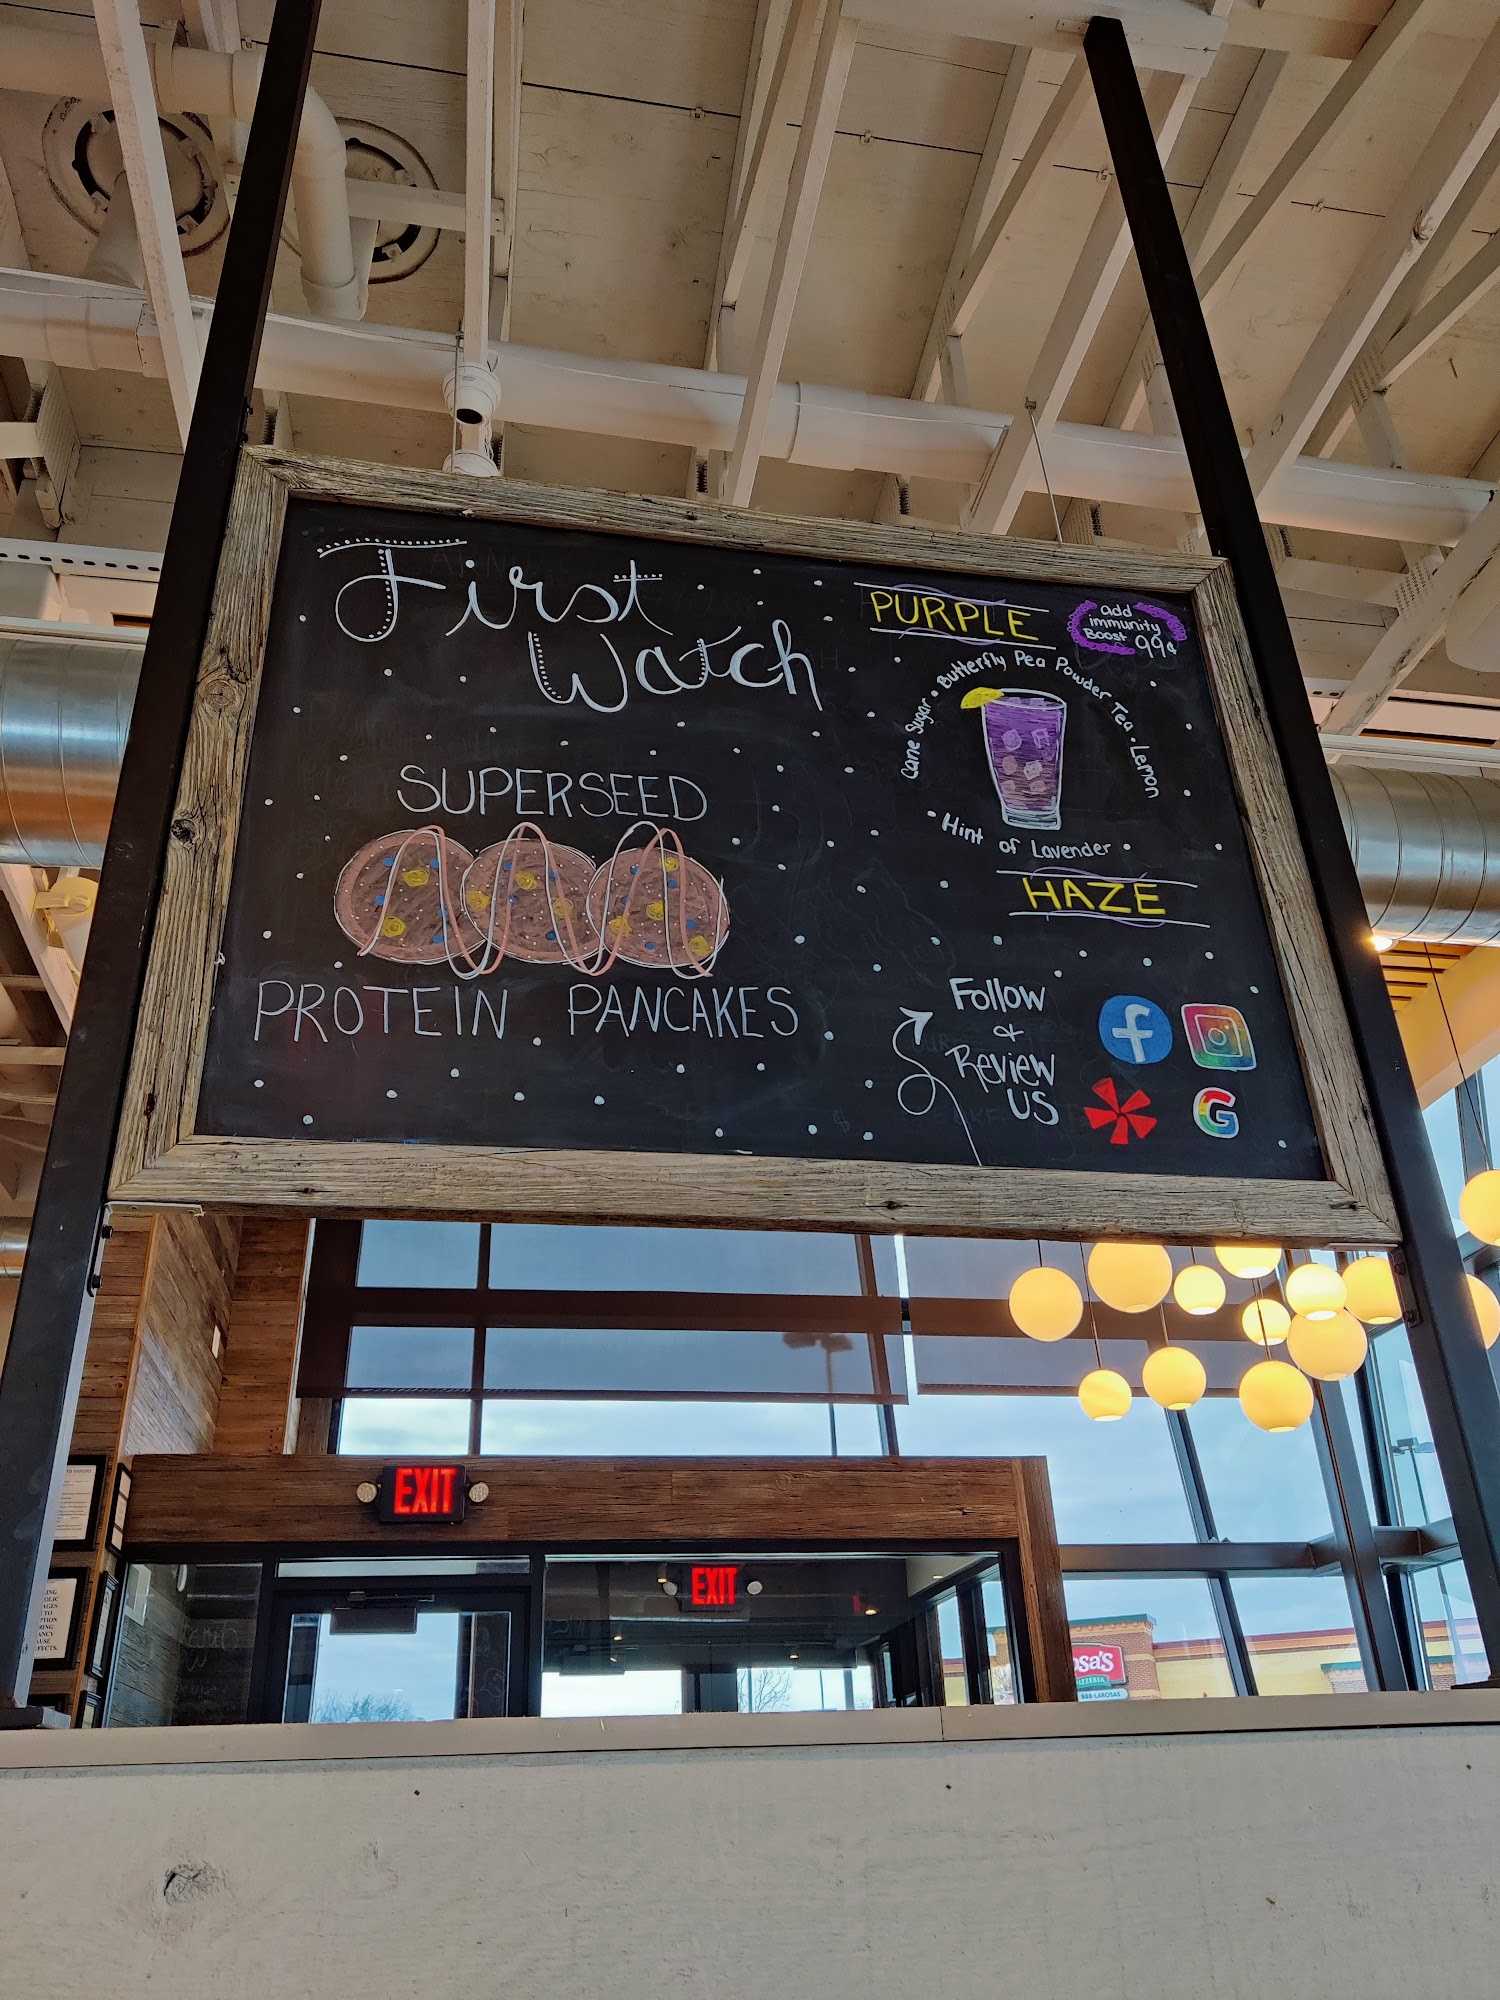 First
Watch
SUPERSEED
PROTEIN PANCAKES
PURPLE
add
immunity
Boost 99¢
Cane Sugar • Butterfly Pea Powder Tea • Lemon
• Hint of Lavender •
HAZE
Follow
&
Review
US
f
G
EXIT
EXIT
OSA'S
PIZZERIA
888-LAROSAS